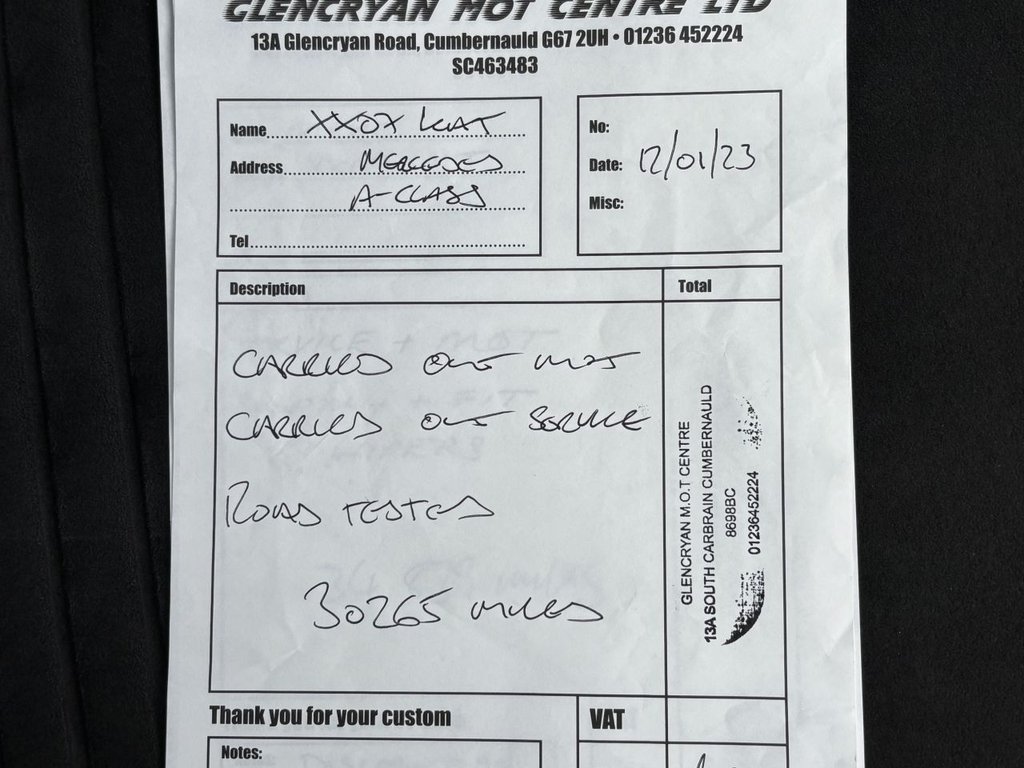 GLENCRYAN MOT CENTRE LTD
13A Glencryan Road, Cumbernauld G67 2UH • 01236 452224
SC463483
Name
Address MERCEDES
A-CLASS
Tel
No:
Date: 12/01/23
Misc:
Description
Total
CARRIED OUT MOT
CARRIED OUT SERVICE
ROAD TESTED
30265 MILES
GLENCRYAN M.O.T CENTRE
13A SOUTH CARBRAIN CUMBERNAULD
8698BC
01236452224
Thank you for your custom
VAT
Notes: